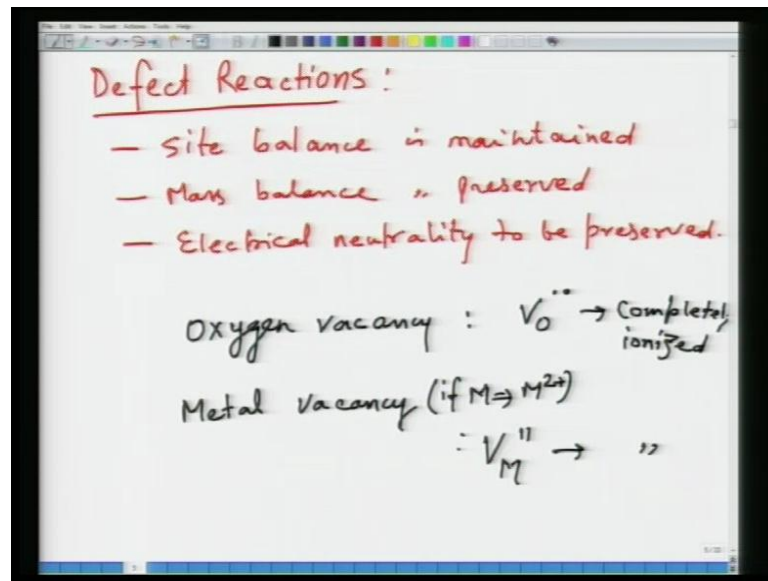 Defect Reactions :
— Site balance is maintained
— Mass balance " preserved
— Electrical neutrality to be preserved.
Oxygen vacancy : V_O^{••} → Completely
ionized
Metal vacancy (if M ⇒ M^{2+})
: V_M^{''} → "